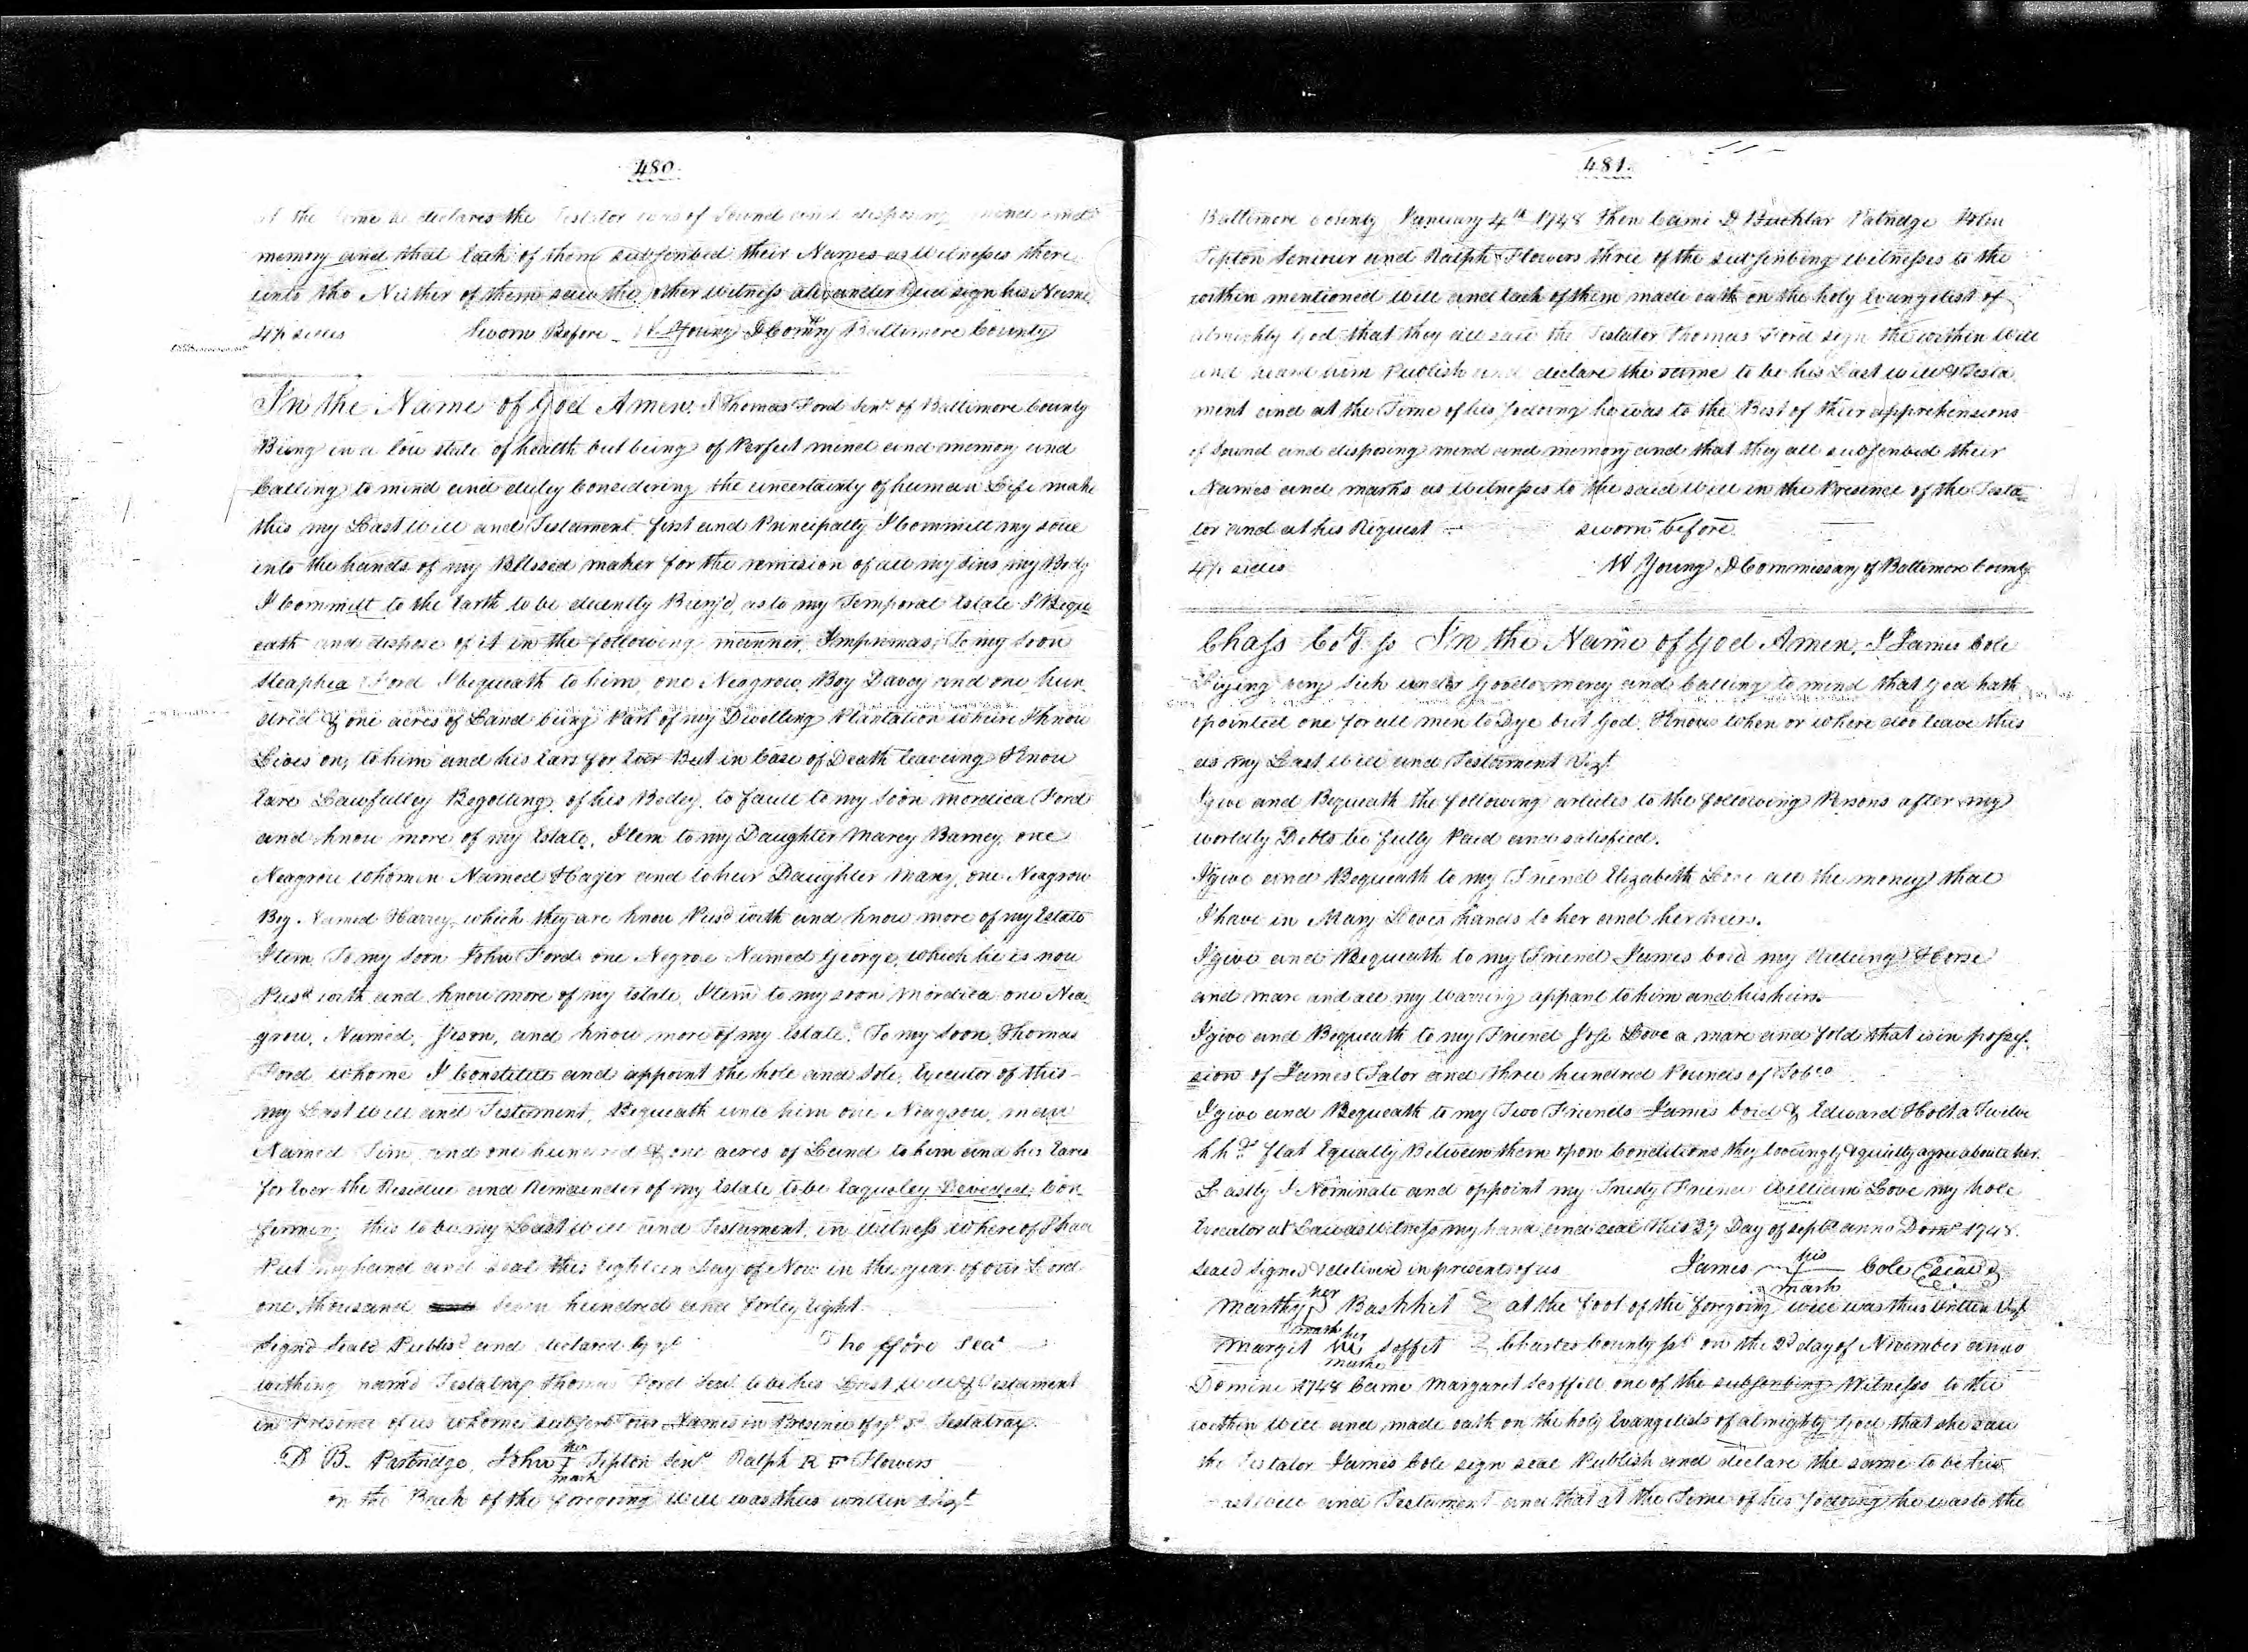 480.
at the time he declares the Testator was of Sound and disposing mind and
memory and that Each of them subscribed their Names as Witnesses there
unto tho Neither of them saw the other witness alexander sign his Name
4 p sides Sworn Before W Young D Comry Baltimore County
In the Name of God Amen. I Thomas Ford Senr. of Baltimore County
Being in a Low state of health but being of Perfect mind and memory and
Calling to mind and duley Considering the uncertainty of human Life make
this my Last Will and Testament first and Principally I Committ my soul
into the hands of my Blessed maker for the remision of all my sins my Body
I Committ to the Earth to be decently Buryd, as to my Temporal Estate I Beque
eath and dispose of it in the following manner, Impremas, To my Soon
Steaphea Ford I bequeath to him one Neagrow Boy Davey and one hun
dred & one acres of Land being Part of my Dwelling Plantation where I know
Lives on, to him and his Ears for Ever But in Case of Death leaveing Know
Eare Lawfulley Begotting of his Bodey, to faull to my Soon Mordica Ford
and know more of my Estate, Item to my Daughter Marey Barney, one
Neagrow Whomen Named Hager and to hur Daughter Mary, one Neagrow
Boy Named Harrey which they are know Pusd with and know more of my Estate
Item To my Soon John Ford one Negroe Named George, which he is now
Pusd with and know more of my Estate, Item to my soon Mordica one Nea
grow, Named, Jeson, and know more of my Estate. To my Soon, Thomas
Ford whome I Constitute and appoint the hole and Sole, Executor of this
my Last Will and Testament, Bequeath unto him one Neagrow, man
Named Sim and one hundred & one acres of Land to him and his Eares
for Ever the Residue and Remainder of my Estate to be Eaqueley Devided, Con
fermin, this to be my Last Will and Testament, in Witness Whereof I have
Put my hand and seal this Eighteen Day of Nov: in the year of our Lord
one thousand seven hundred and forley Eight
Signd Seald Publisd and declared by ye Tho fford Seal
withing namd Testatrap Thomas Ford Senr. to be his Last Will & Testament
in Presence of us whome subscribt our Names in Presence of ye sd. Testatrax.
D B. Partridge, John his T mark Tipton Senr. Ralph R F Flowers
on the Back of the foregoing Will was thus written Vizt
481.
Baltimore County January 4th 1748 then Came D Buchlar Patridge John
Tipton Seniour and Ralph Flowers three of the subscribing witnesses to the
within mentioned Will and Each of them made oath on the holy Evangelist of
almighty God that they all saw the Testator Thomas Ford sign the within Will
and heard him Publish and declare the same to be his Last Will & Testa
ment and at the Time of his so doing he was to the Best of their apprehensions
of Sound and disposing mind and memory and that they all subscribed their
Names and marks as Witnesses to the said Will in the Presence of the Testa
tor and at his Request sworn before
4 p sides W Young D Commissary of Baltimore County
Chass Coy. ss In the Name of God Amen. I James Cole
Liying very Sick under Goods mercy and Calling to mind that God hath
apointed one for all men to Dye but God Knows when or where doo leave this
as my Last will and Testament Vizt.
I give and Bequeath the following articles to the following Persons after my
worldly Debts be fully Paid and satisfied.
I give and Bequeath to my Friend Elizabeth Love all the money that
I have in Mary Loves hands to her and her heirs.
I give and Bequeath to my Friend James boid my Rideing Horse
and mare and all my warring apparl to him and his heirs
I give and Bequeath to my Friend Jos Love a mare and fold that is in posses
sion of James Talor and three hundred Pounds of Tobco
I give and Bequeath to my Two Friends James boid & Edward Holt a Twelve
hhd. flat Equally Between them upon Conditions they loveingly & equally agree about her.
Lastly I Nominate and oppoint my Trusty Friend William Love my hole
Executor at Law as Witness my hand and seal this 27 Day of septr anno Domo 1748.
seald signed & delivered in presents of us James his mark Cole Seald
Marthy her mark Bashhit at the foot of the foregoing will was thus Written Vizt
Margit her marke Soffit Charles County sst. on the 2d day of November anno
Domini 1748 Came Margaret Scoffill one of the subscribing Witnesses to the
within Will and made oath on the holy Evangelists of almighty God that she saw
the Testator James Cole sign seal Publish and declare the same to be his
Last Will and Testament and that at the Time of his so doing he was to the